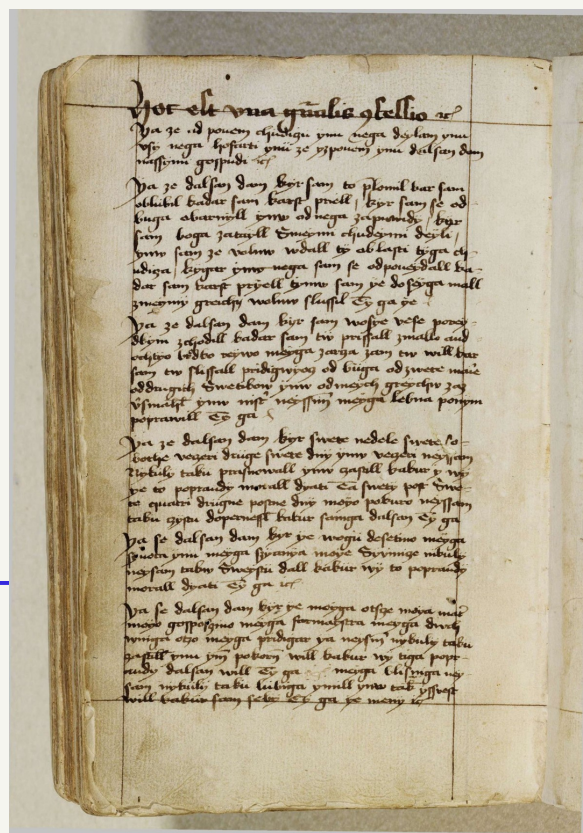 Hoc est una gn̄alis ꝯfessio ꝛc̄
Ya ze od povem chudiczu ynu nega deylam ynu
vsy nega hoffarti ynu ze yzpovem ynu dalsan dam
nassymi gospudi ꝛc̄
Ya ze dalsan dam kyr sam to plomil kar sam
oblubil kadar sam karst priell, kyr sam se od
buga abarnyll ynw od nega zapovidy, kyr
sam boga zatayll Smeymi chudeymi deyli,
ynw sam ze volnw vdall ty oblasti tiga ch
udiza, kygar ynw nega sam se odpoveydall ka
dar sam karst pryell tymw sam ye do seyga mall
zmeymy greichy volnw slussil Ty ga ye
Ya ze dalsan dam kyr sam woshye vese povey
dnym zchodill kadar sam tw prissall zmallo and
ochtyo redko teywo meyga zarga zam tw will kar
sam tw slissall pridigwyocz od buga od zwete marie
od drugich Swetikow ynw od meych greychw zaz
sam nyst neyssm meyga lebna ponym
popravill Ty ga
Ya ze dalsan dam kyr swete nedele swete So
bothe vezeri druge swete dny ynw vezeri neyssam
Nykuly taku praznowall ynw zastll kakur y wy
ye to poprawdy morall dyati Ta swety post Swe
te quatri drugne postne dny moyo pokuro neyssam
taku zystu dopernessl kakur samga dalsan Ty ga
Ya se dalsan dam kyr ye wogu desetino meyga
syvota ynu meyga ymanya moye Syrinige nikuly
neysam takw Sweystu dall kakur wy to poprawdy
morall dyati Ty ga ꝛc̄
Ya se dalsan dam kyr ye meyga otsche moya mater
moyo gosposczino meyga farmastra meyga duch
wniga otzo meyga pridigar ya neysm nykuly taku
zastill ynu ym pokorn will kakur wy tiga popr
audy dalsan will Ty ga meyga blisniga ney
sam nykuly taku lubiga ymill ynw tak yssvest
will kakur sam sebe Ty ga ye meny ꝛc̄